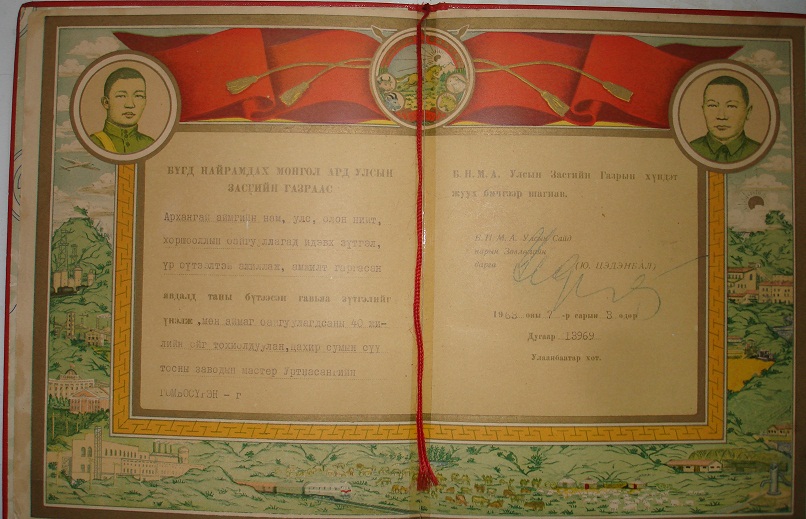 БҮГД НАЙРАМДАХ МОНГОЛ АРД УЛСЫН
ЗАСГИЙН ГАЗРААС
Архангай аймгийн нам, улс, олон нийт,
хоршооллын байгууллагад идэвх зүтгэл,
үр бүтээлтэй ажиллаж, амжилт гаргасан
явдалд таны бүтээсэн гавьяа зүтгэлийг
үнэлж, мөн аймаг байгуулагдсаны 40 жи-
лийн ойг тохиолдуулан, цахир сумын сүү
тосны заводын мастер
- г
Б.Н.М.А. Улсын Засгийн Газрын хүндэт
жуух бичгээр шагнав.
Б.Н.М.А. Улсын Сайд
нарын Зөвлөлийн
дарга (Ю. ЦЭДЭНБАЛ)
1963 оны 7 -р сарын 3 өдөр
Дугаар 13969
Улаанбаатар хот.